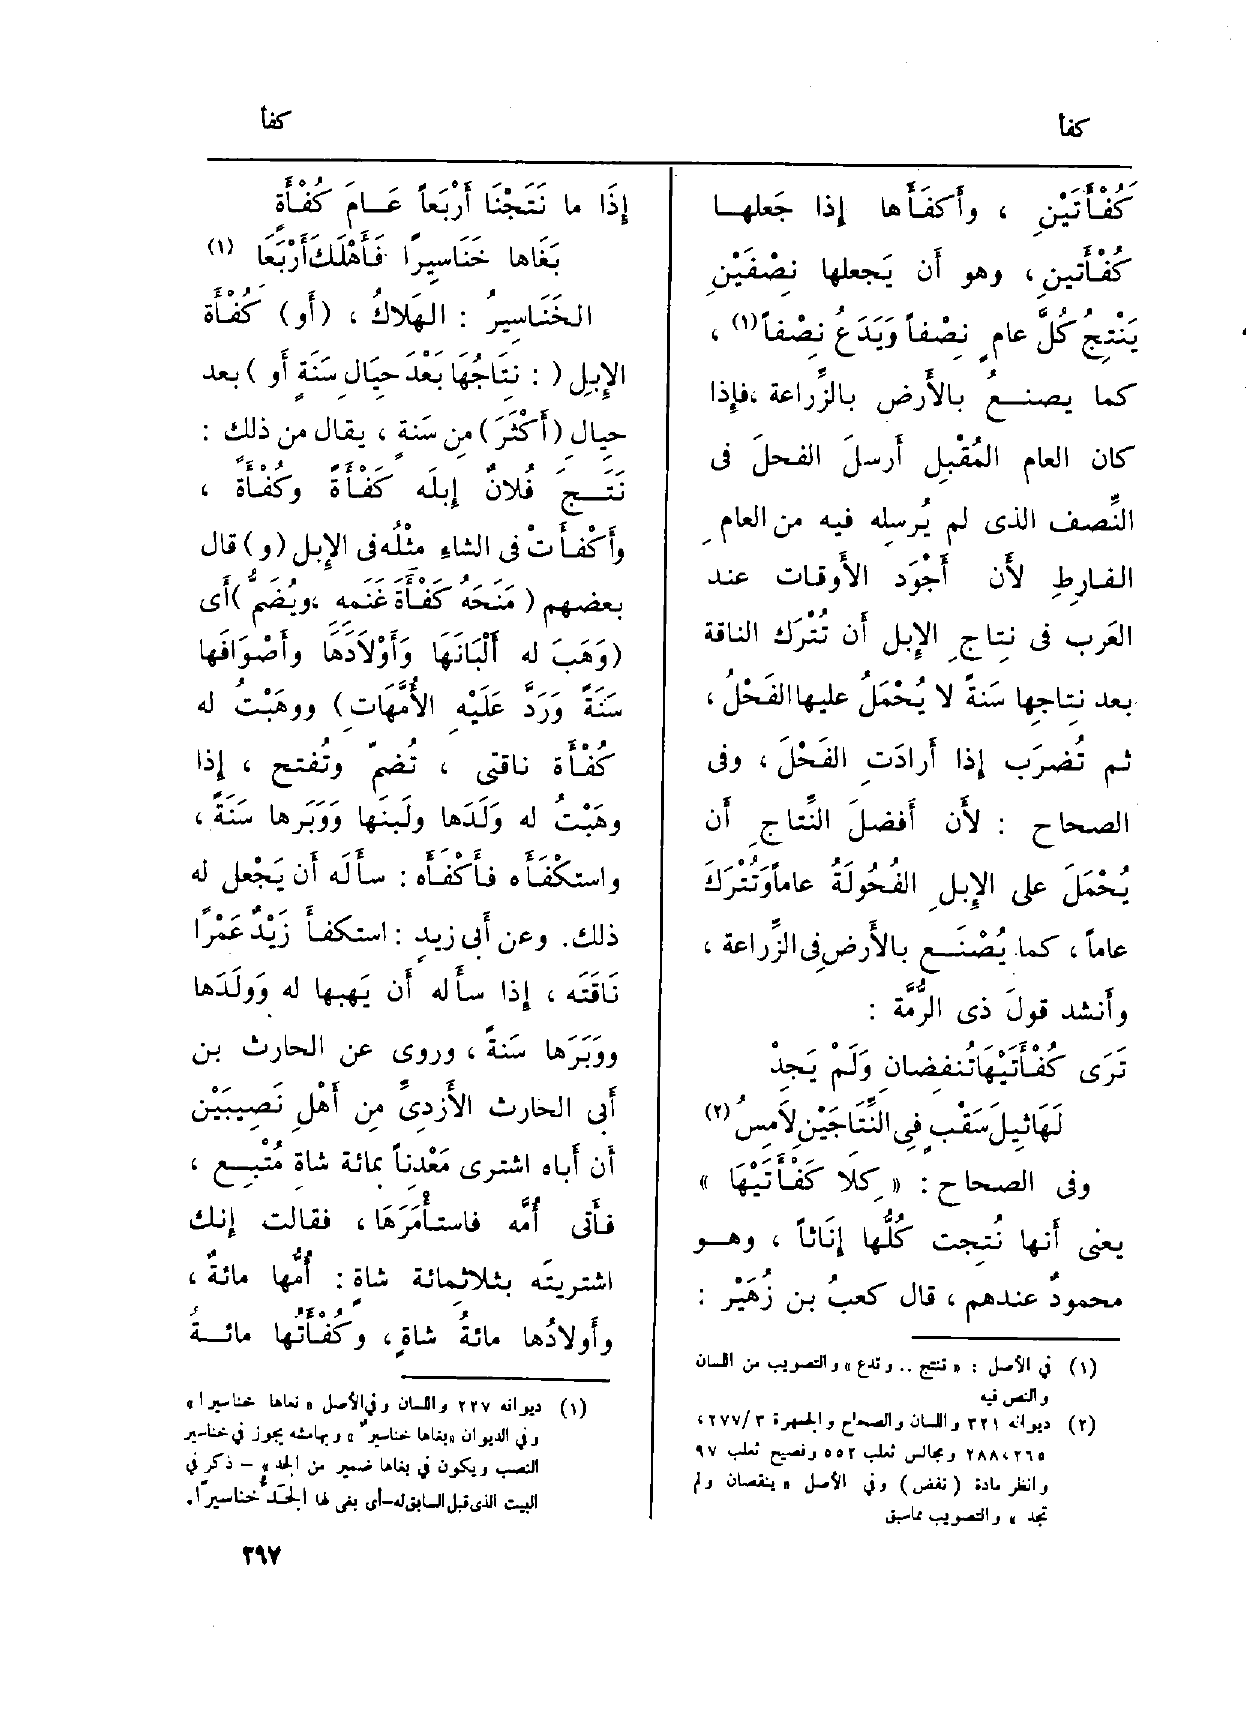 كفأ
كفأ
كُفْأَتَيْنِ ، وأَكفَأَها إذا جَعلهـا
كُفْأَتينِ ، وهو أن يَجعلها نِصْفَيْنِ
يَنْتِجُ كُلَّ عامٍ نِصْفاً وَيَدَعُ نِصْفاً (١) ،
كما يصنـعُ بالأَرضِ بالزِّراعة ، فإذا
كان العام المُقْبِل أَرسلَ الفحلَ فى
النِّصف الذى لم يُرسِله فيه من العامِ
الفـارِطِ لأَن أَجْوَد الأَوقات عند
العَرب فى نِتاجِ الإِبل أَن تُتْرَك الناقة
بعد نِتاجِها سَنةً لا يُحْمَلُ عليها الفَحْلُ ،
ثم تُضرَب إذا أَرادَتِ الفَحْلَ ، وفى
الصحاح : لأَن أَفضلَ النِّتاجِ أَن
يُحْمَلَ على الإِبلِ الفُحُولَةُ عاماً وَتُتْرَكَ
عاماً ، كما يُصْنَـع بالأَرضِ فى الزِّراعة ،
وأَنشد قولَ ذى الرُّمَّة :
تَرَى كُفْأَتَيْهَا تُنفِضان وَلَمْ يَجِدْ
لَهَا ثِيلَ سَقْبٍ فِى النِّتَاجَيْنِ لاَمِسُ (٢)
وفى الصحاح : « كِلا كَفْأَتَيْهَا »
يعنى أَنها نُتِجت كُلُّها إِنَاثاً ، وهـو
محمودٌ عندهم ، قال كعبُ بن زُهَيْر :
(١) في الأصل : « تنتج .. وتدع » والتصويب من اللسان
والنص فيه
(٢) ديوانه ٣٢١ واللسان والصحاح والجمهرة ٢٧٧/٣ ،
٢٨٨،٢٦٥ ومجالس ثعلب ٥٥٢ وفصيح ثعلب ٩٧
وانظر مادة (نفض) وفي الأصل « ينقصان ولم
تجد » والتصويب مما سبق
إِذَا ما نَتَجْنَا أَرْبَعاً عَـامَ كُفْأَةٍ
بَغَاها خَنَاسِيرًا فَأَهْلَكَ أَرْبَعَا (١)
الخَنَاسِيرُ : الهَلاكُ ، (أَو) كُفْأَة
الإِبِلِ ( : نِتَاجُهَا بَعْدَ حِيَالِ سَنَةٍ أَو ) بعد
حِيالِ (أَكْثَرَ) من سَنةٍ ، يقال من ذلك :
نَتَـجَ فُلانٌ إِبِلَه كَفْـأَةً وكُفْـأَةً ،
وأَكْفَـأَتْ فى الشاءِ مثلُه فى الإِبِلِ (و) قال
بعضهم ( مَنَحَه كَفْـأَةَ غَنَمِه ، ويُضَمُّ ) أَى
(وَهَبَ له أَلْبَانَهَا وَأَوْلاَدَهَا وأَصْوَافَها
سَنَةً وَرَدَّ عَلَيْهِ الأُمَّهَاتِ) ووهَبْتُ له
كُفْأَة ناقتى ، تُضمّ وتُفتح ، إذا
وهَبْتُ له وَلَدَها ولَبنَها وَوَبَرها سَنَةً ،
واستكْفَأَه فـأَكْفَأَه : سـأَلَه أَن يَجْعل له
ذلك. وعن أَبى زيدٍ : استكفـأَ زَيْدٌ عَمْرًا
نَاقَتَه ، إذا سـأَله أَن يَهبها له وَوَلَدَها
وَوَبَرَها سَنةً ، وروى عن الحارث بن
أَبى الحارث الأَزدىّ من أَهْلِ نَصِيبَيْن
أَن أَباه اشترى مَعْدِناً بمائة شاة مُتْبِـع ،
فـأَتى أُمَّه فاستـأْمَرَها ، فقالت إنك
اشتريتَه بثلاثمائة شاةٍ : أُمُّها مائةٌ ،
وأَولادُها مائةُ شاةٍ ، وكُفْـأَتُها مائـةُ
(١) ديوانه ٢٢٧ واللسان وفي الأصل « نعاها خناسيرا »
وفي الديوان «بغاها خناسير» وبهامشه يجوز في خناسير
النصب ويكون في بغاها ضمير من الجد » – ذكر في
البيت الذى قبل السابق له–أى بغى لها الجَدُّ خناسيرًا.
٣٩٧